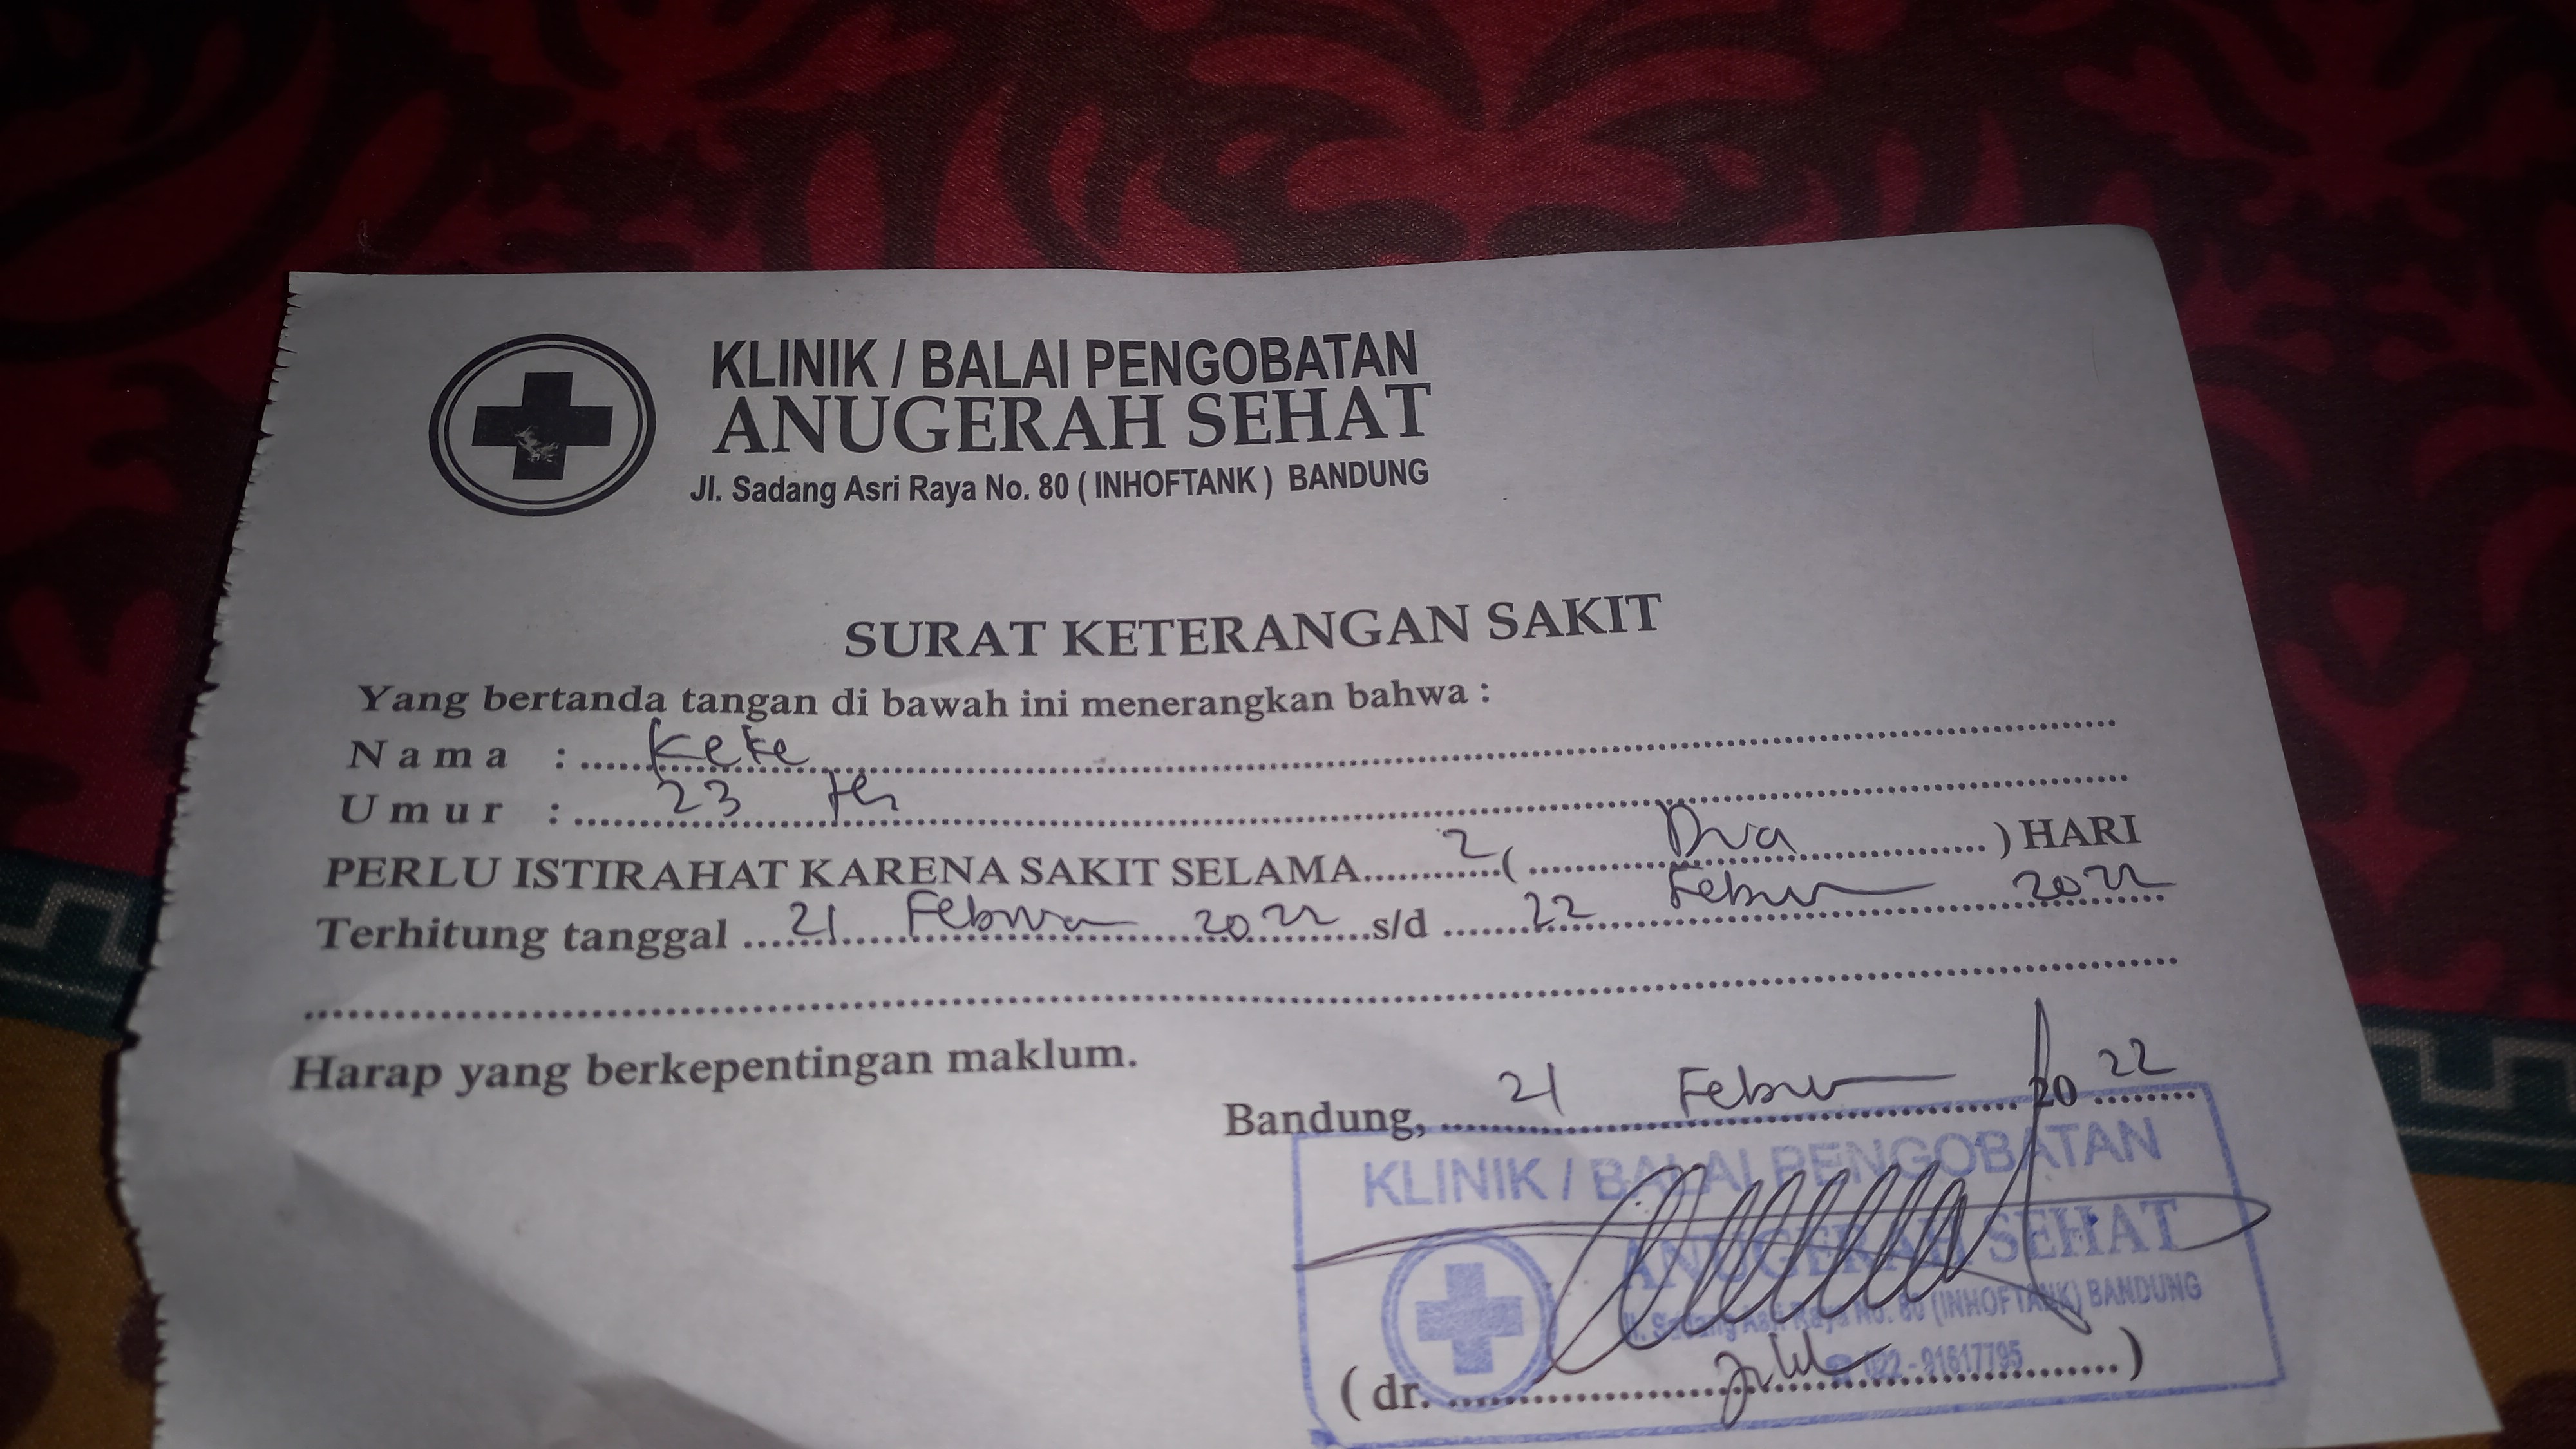 KLINIK / BALAI PENGOBATAN
ANUGERAH SEHAT
Jl. Sadang Asri Raya No. 80 ( INHOFTANK ) BANDUNG
SURAT KETERANGAN SAKIT
Yang bertanda tangan di bawah ini menerangkan bahwa :
N a m a : Keke
U m u r : 23
PERLU ISTIRAHAT KARENA SAKIT SELAMA 2 ( Dua ) HARI
Terhitung tanggal 21 Februari 2022 s/d 22 Februari 2022
Harap yang berkepentingan maklum.
Bandung, 21 Februari 2022
KLINIK / BALAI PENGOBATAN
ANUGERAH SEHAT
Jl. Sadang Asri Raya No. 80 (INHOFTANK) BANDUNG
( dr. )